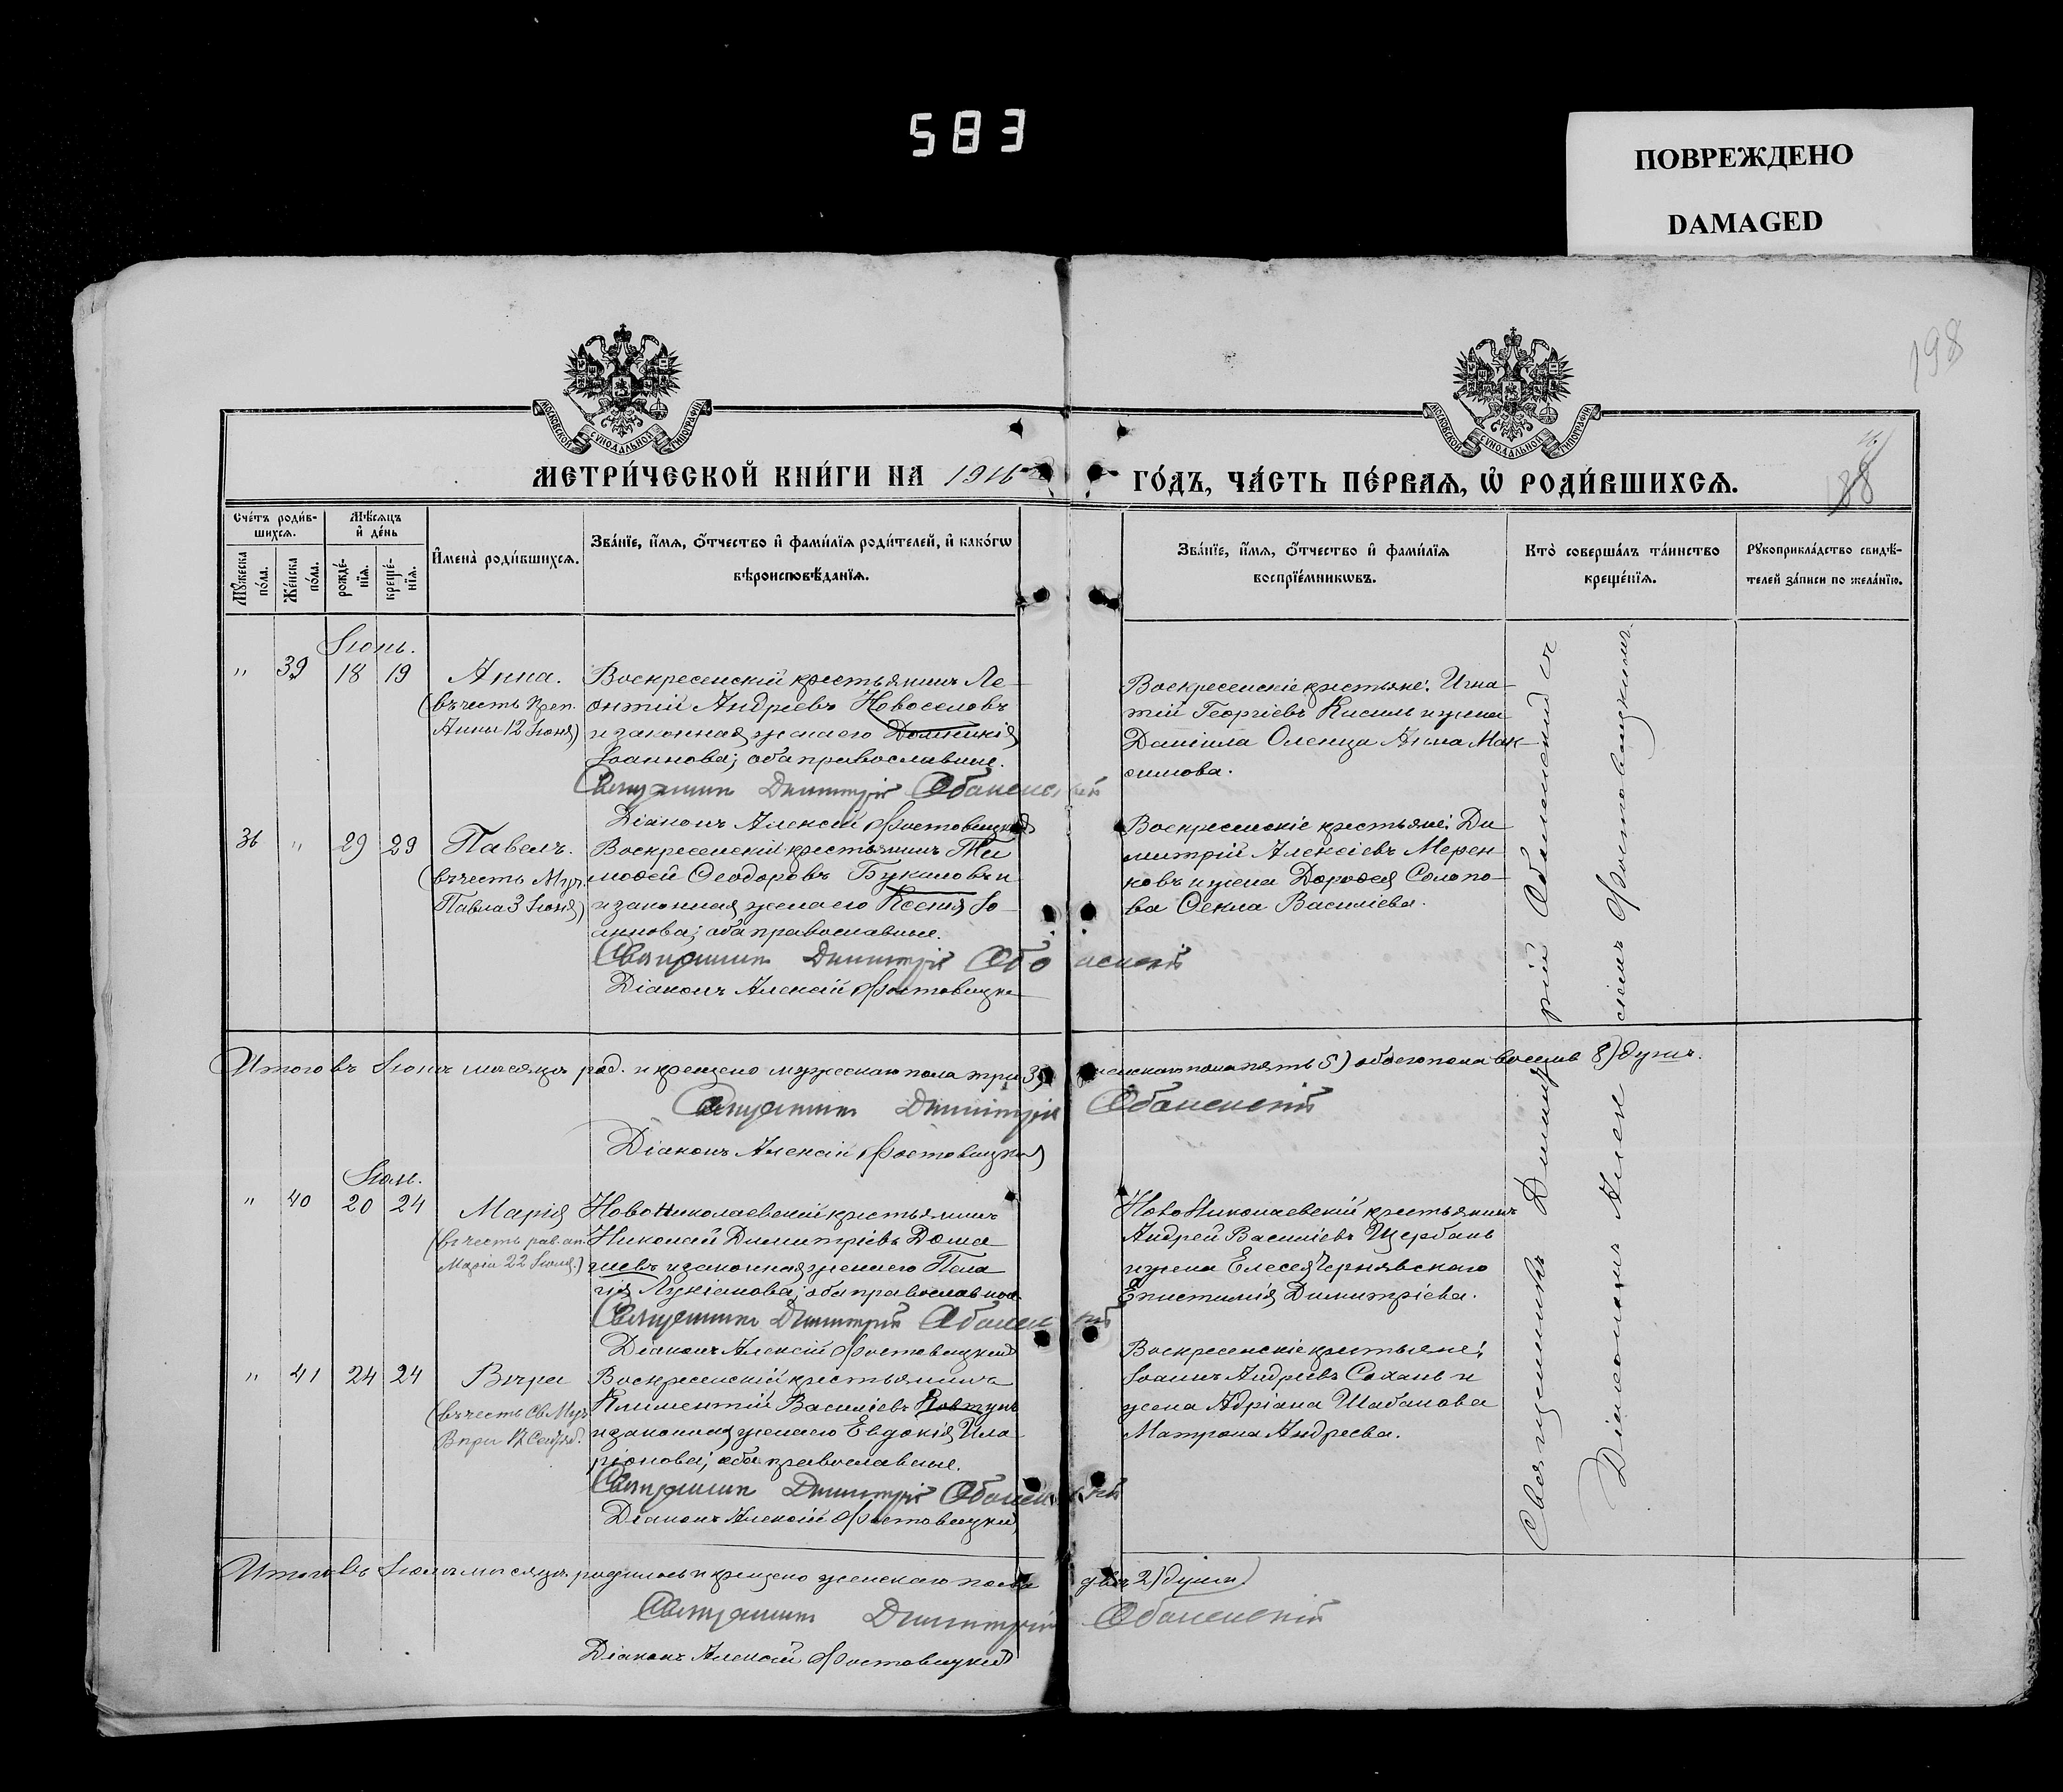 583
ПОВРЕЖДЕНО
DAMAGED
198
МОСКОВСКОЙ СѴНОДАЛЬНОЙ ТИПОГРАФІИ
МОСКОВСКОЙ СѴНОДАЛЬНОЙ ТИПОГРАФІИ
МЕТРИ́ЧЕСКОЙ КНИ́ГИ НА 1916
ГО́ДЪ, ЧА́СТЬ ПЕ́РВАѦ, Ѡ҆ РОДИ́ВШИХСѦ.
Сче́тъ роди́в-
шихсѧ.
Мꙋ́жеска по́ла.
Же́нска по́ла.
Мѣ́сѧцъ и҆ де́нь
рожде́-нїѧ.
креще́-нїѧ.
И҆мена̀ роди́вшихсѧ.
Зва́нїе, и҆́мѧ, ѻ҆́тчество и҆ фами́лїѧ роди́телей, и҆ како́гѡ
вѣроисповѣ́данїѧ.
Зва́нїе, и҆́мѧ, ѻ҆́тчество и҆ фами́лїѧ
воспрїе́мникѡвъ.
Кто̀ соверша́лъ та́инство
креще́нїѧ.
Рꙋкоприкла́дство свидѣ́-
телей за́писи по жела́нїю.
Іюнь.
" 39 18 19 Анна.
(въ честь преп.
Анны 12 Іюня)
Воскресенскій крестьянинъ Ле-
онтій Андреевъ Новоселовъ
и законная жена его Домникія
Іоаннова; оба православные.
Священникъ Димитрій Оболенскій
Діаконъ Алексій Фостовицкій
Воскресенскіе крестьяне: Игна-
тій Георгіевъ Кисиль и жена
Даніила Оленца Анна Мак-
симова.
36 " 29 29 Павелъ.
(въ честь Муч.
Павла 3 Іюня)
Воскресенскій крестьянинъ Ти
моѳей Ѳеодоровъ Букиловъ и
и законная жена его Ксенія Іо-
аннова; оба православные.
Священникъ Димитрій Оболенскій
Діаконъ Алексій Фостовицкій
Воскресенскіе крестьяне: Ди
митрій Алексіевъ Мерен
ковъ и жена Дороѳея Солопо-
ва Ѳекла Василіева.
Итого въ Іюнѣ мѣсяцѣ род. и крещено мужескаго пола три 3) женскаго пола пять 5) обоего пола восемь 8) душъ.
Священникъ Димитрій Оболенскій
Діаконъ Алексій Фостовицкій
Іюль.
" 40 20 24 Марія
(въ честь рав. ап.
Маріи 22 Іюля.)
Новониколаевскій крестьянинъ
Николай Димитріевъ Дома
шевъ и законная жена его Пела
гія Лукіанова; оба православные
Священникъ Димитрій Оболенскій
Діаконъ Алексій Фостовицкій
НовоНиколаевскій крестьянинъ
Андрей Василіевъ Щербань
и жена Елесея Чернявскаго
Епистимія Димитріева.
" 41 24 24 Вѣра
(въ честь св. Муч.
Вѣры 17 Сентяб.
Воскресенскій крестьянинъ
Климентій Василіевъ Ковтунъ
и законная жена его Евдокія Ила
ріонова; оба православные.
Священникъ Димитрій Оболенскій
Діаконъ Алексій Фостовицкій
Воскресенскіе крестьяне:
Іоаннъ Андреевъ Сахань и
жена Адріана Шабанова
Матрона Андреева.
Итого въ Іюлѣ мѣсяцѣ родилось и крещено женскаго пола двѣ 2) души.
Священникъ Димитрій Оболенскій
Діаконъ Алексій Фостовицкій
Священникъ Димитрій Оболенскій съ
Діакономъ Алексіемъ Фостовицкимъ.